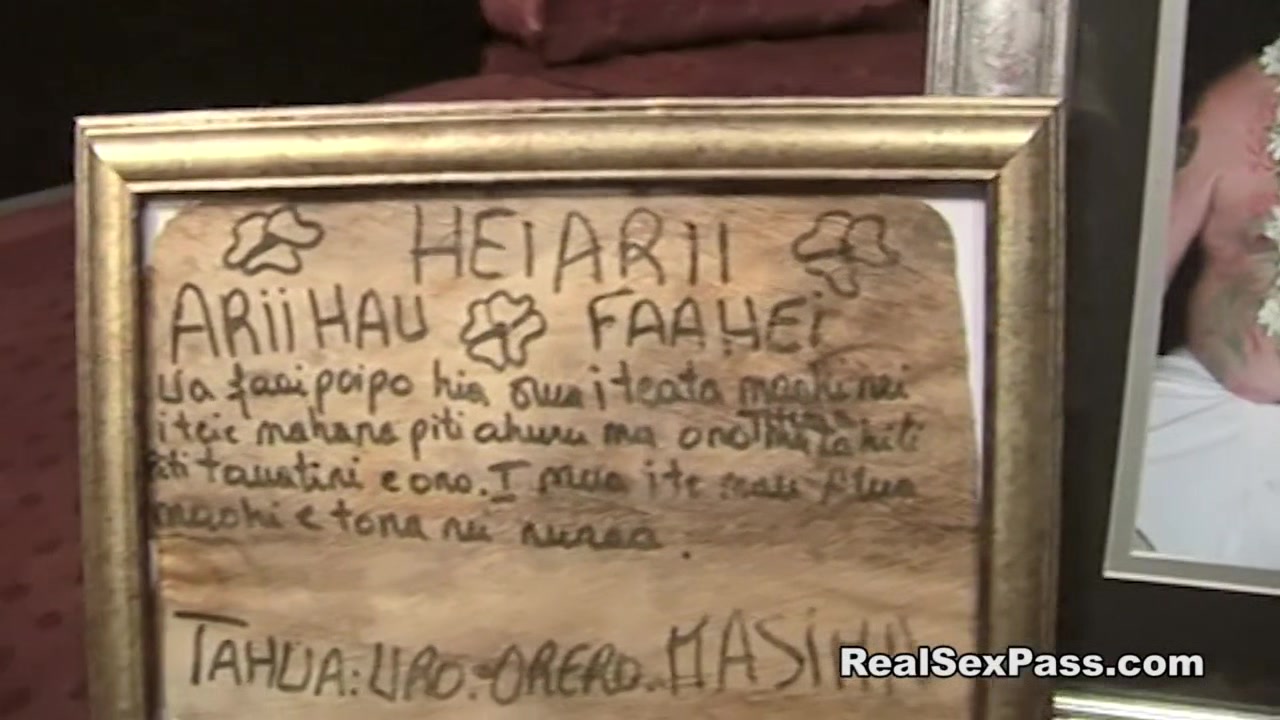 HEIARII
ARIIHAU FAAHEI
Ua faaipoipo hia i teata maohi nei
i teie mahana piti ahuru ma ono
piti tausitini e ono. I mua ite mau
maohi e tona nei nunaa.
TAHUA: UPO.-ORERO.
RealSexPass.com